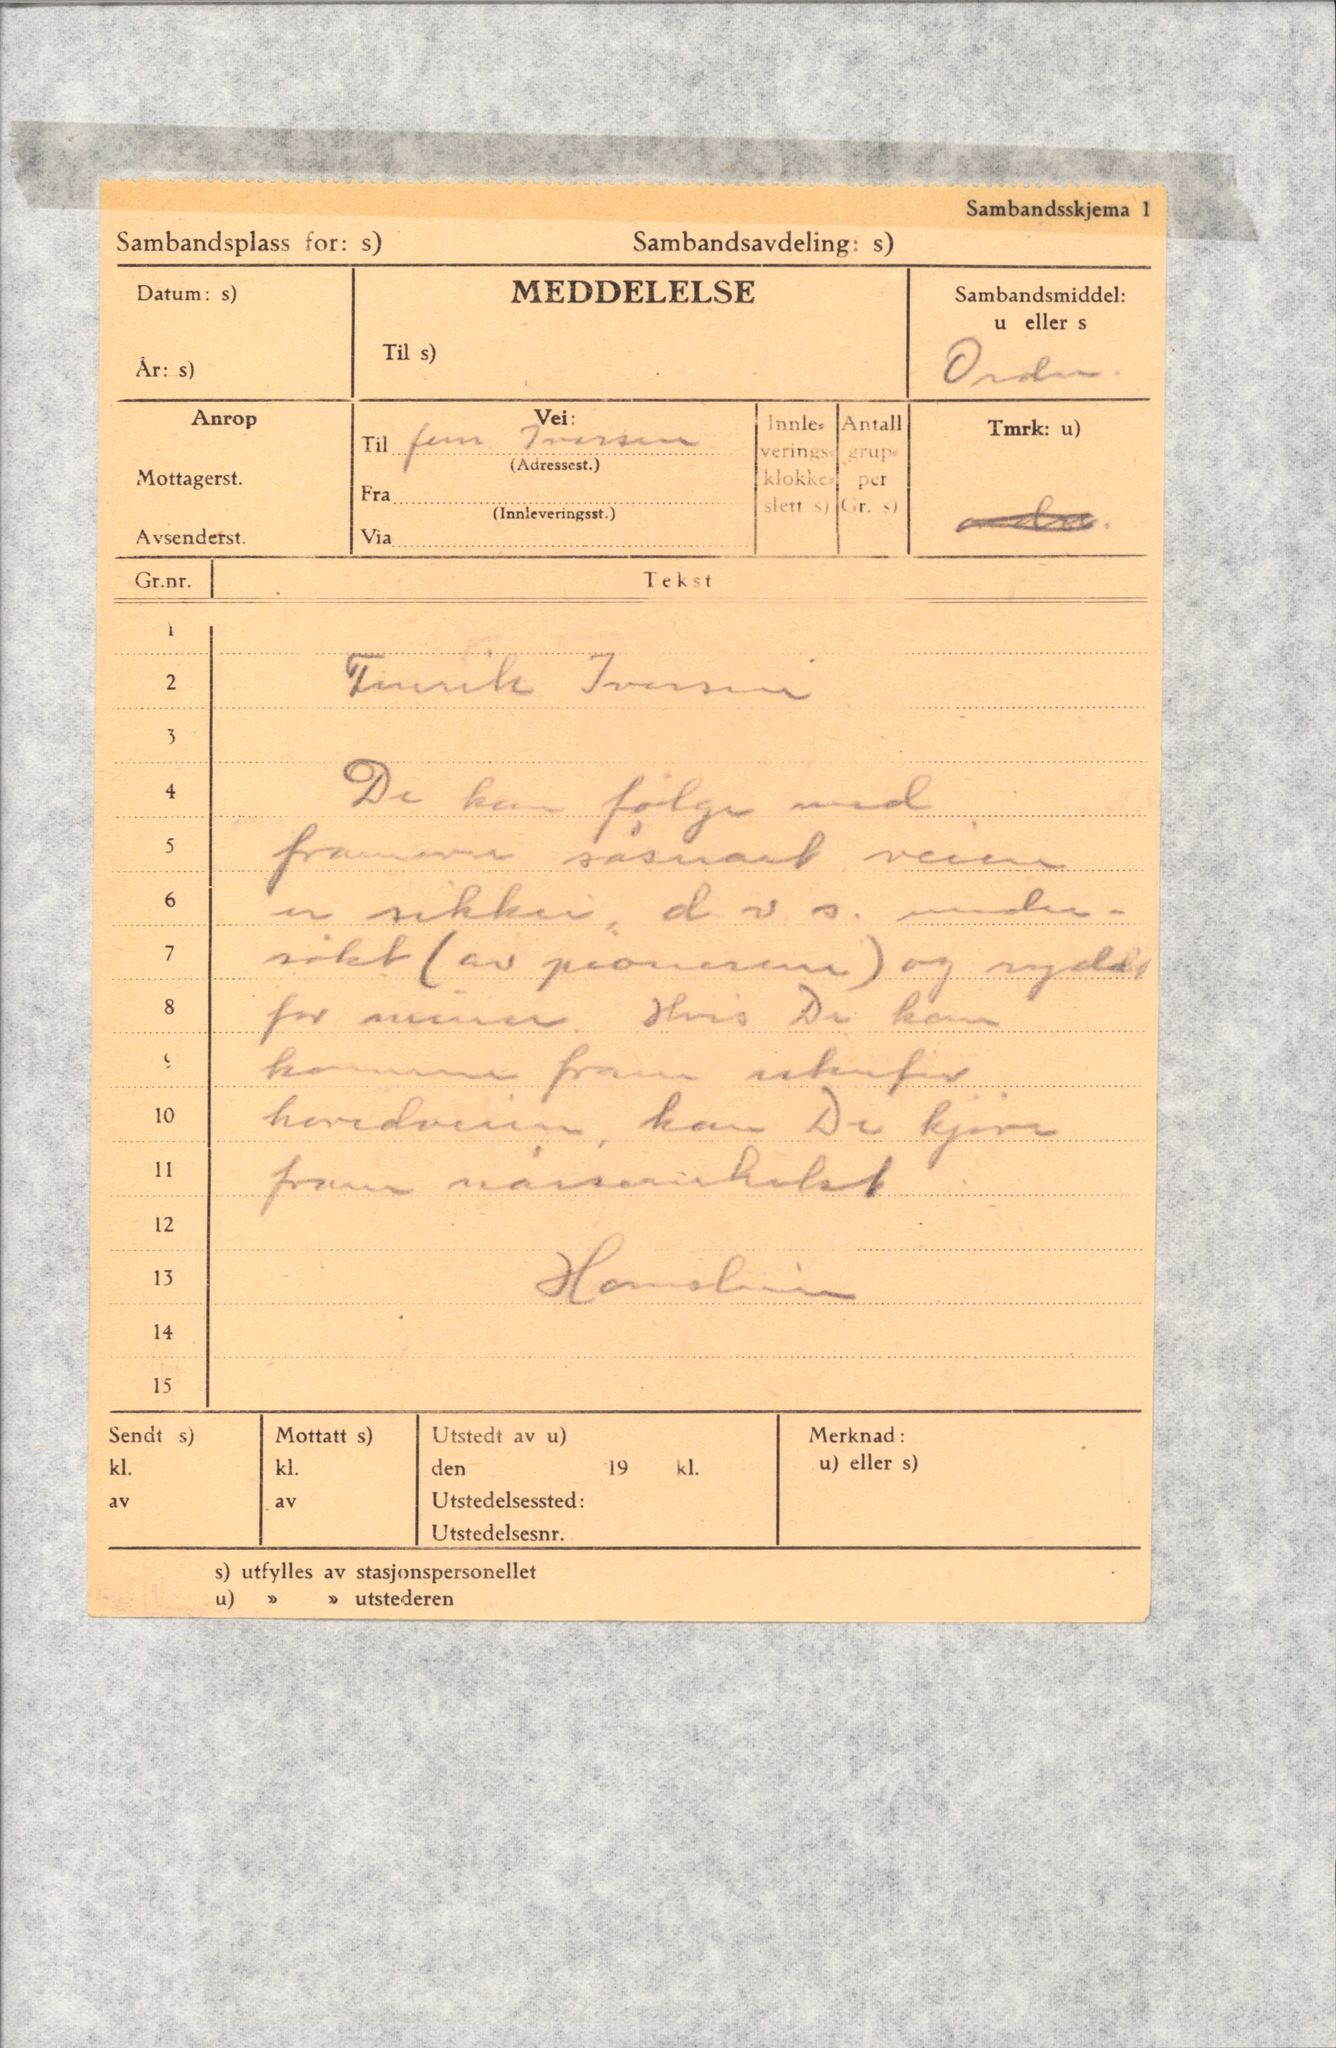 Sambandsskjema 1
Sambandsplass for: s) Sambandsavdeling: s)
Datum: s)
År: s)
MEDDELELSE
Til s)
Sambandsmiddel:
u eller s
Ordn.
Anrop
Mottagerst.
Avsenderst.
Vei:
Til fenr Iversen
(Adressest.)
Fra
(Innleveringsst.)
Via
Innle-
verings-
klokke-
slett s)
Antall
grup-
per
Gr. s)
Tmrk: u)
Gr.nr. Tekst
1
2 Fenrik Iversen
3
4 De kan følge med
5 framover såsnart veien
6 er sikker, d. v. s. under-
7 søkt (av pionerene) og ryddet
8 for miner. Hvis De kan
9 komme fram utenfor
10 hovedveien, kan De kjøre
11 fram nårsomhelst
12
13
14
15
Sendt s)
kl.
av
Mottatt s)
kl.
av
Utstedt av u)
den 19 kl.
Utstedelsessted:
Utstedelsesnr.
Merknad:
u) eller s)
s) utfylles av stasjonspersonellet
u) » » utstederen